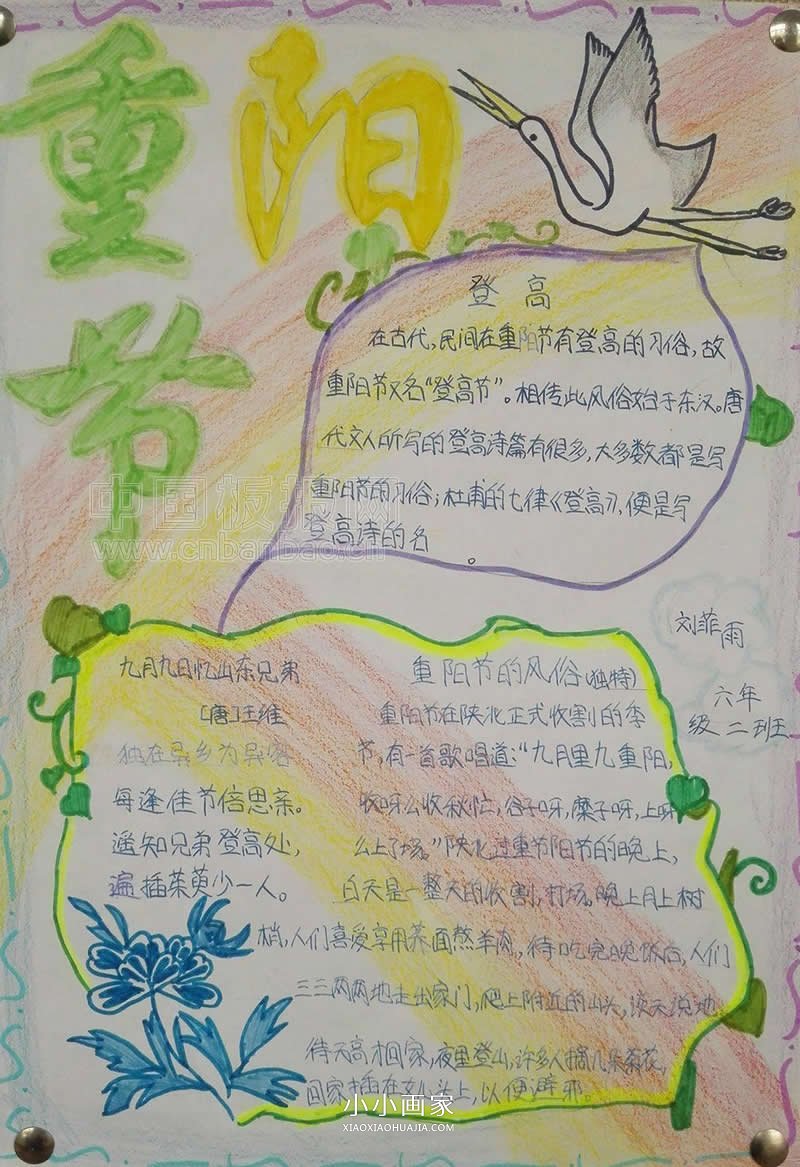 重阳节
登高
在古代，民间在重阳节有登高的习俗，故
重阳节又名“登高节”。相传此风俗始于东汉。唐
代文人所写的登高诗篇有很多，大多数都是写
重阳节的习俗；杜甫的七律《登高》，便是写
登高诗的名
。
中国板报网
www.cnbanbao.cn
刘菲雨
六年
级二班
九月九日忆山东兄弟
[唐]王维
独在异乡为异客
每逢佳节倍思亲。
遥知兄弟登高处，
遍插茱萸少一人。
重阳节的风俗(独特)
重阳节在陕北正式收割的季
节，有一首歌唱道：“九月里九重阳，
收呀么收秋忙，谷子呀，糜子呀，上呀
么上了场。”陕北过重节阳节的晚上，
白天是一整天的收割，打场。晚上月上树
梢，人们喜爱享用荞面熬羊肉，待吃完晚饭后，人们
三三两两地走出家门，爬上附近的山头，谈天说地
待天高才回家，夜里登山，许多人摘几朵菊花，
回家插在女儿头上，以便避邪。
小小画家
XIAOXIAOHUAJIA.COM